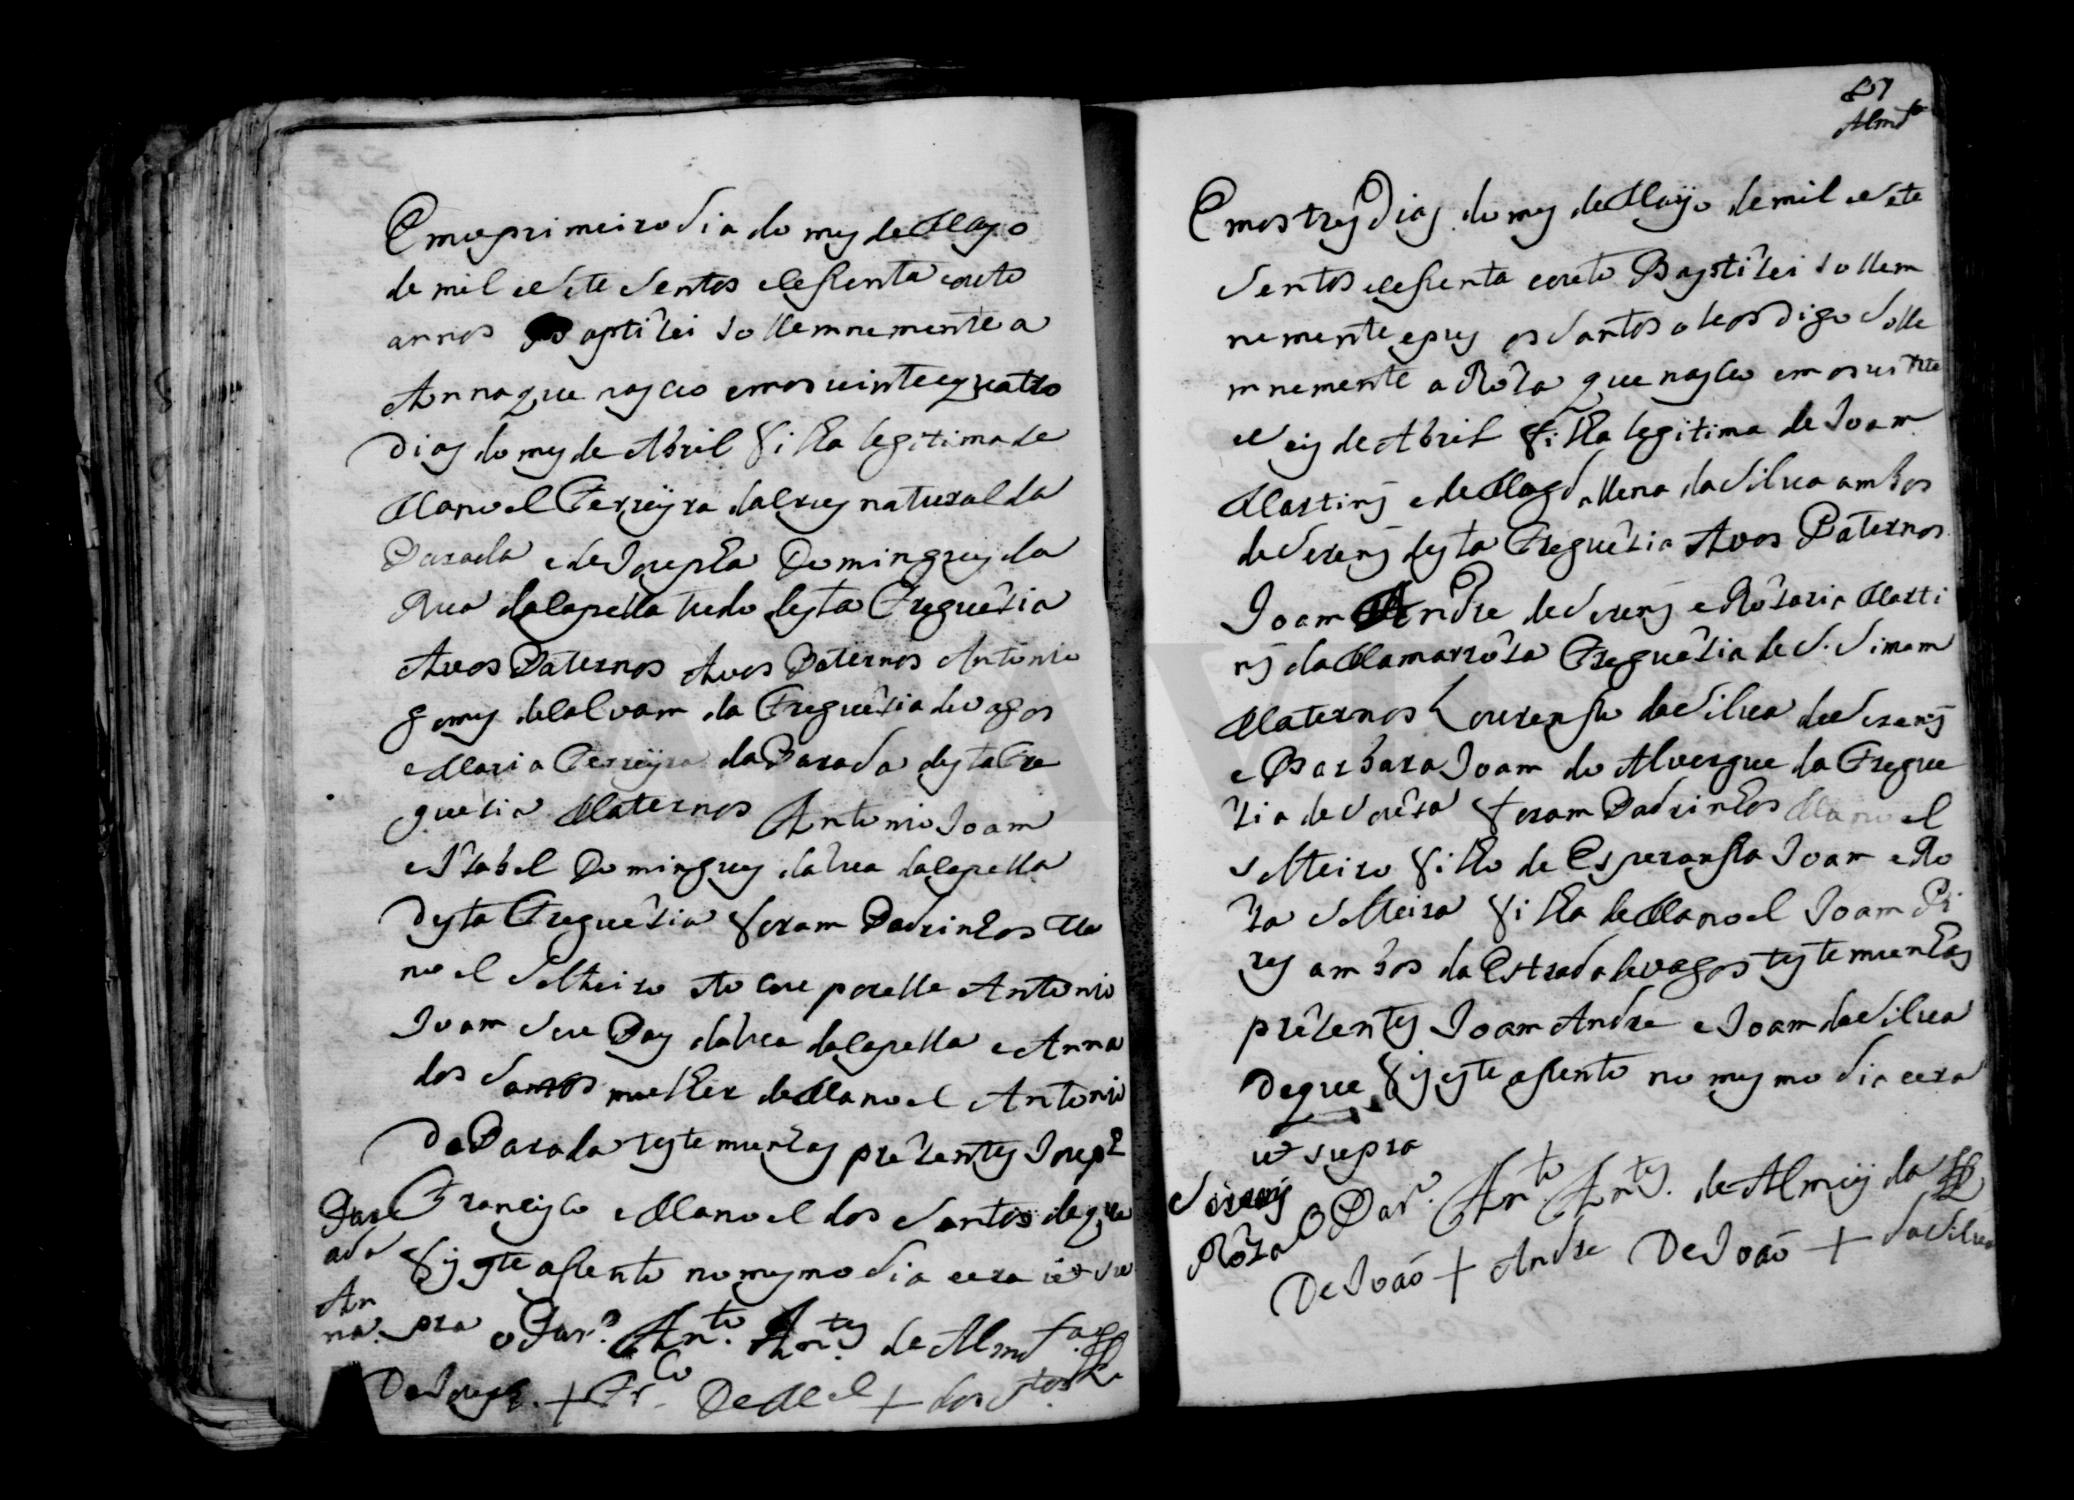 Em o primeiro dia do mes de Mayo
de mil e sete sentos e sesenta e outo
annos Baptizei sollemnemente a
Anna que nasceo em os uinte e quatro
Dias do mes de Abril filha legitima de
Manoel Ferreÿra natural da
Parada e de Josepha Domingues da
Rua da Capella tudo desta Freguezia
Avos Paternos Avos Paternos Antonio
gomes de Calvam da Freguezia de vagos
e Maria Ferreÿra da Parada desta Fre
guezia Maternos Antonio Joam
e Izabel Domingues da rua da Capella
Desta Freguezia foram Padrinhos Ma
noel Solteiro tocou por elle Antonio
Joam Seu Pay da rua da Capella e Anna
dos Santos mulher de Manoel Antonio
Da Parada testemunhas prezentes Joseph
Francisco e Manoel dos Santos de que
fis este asento no mesmo dia e era ut su
pra o Par.º An.to An.tes de Almd.a
De Joseph + Fr.co De M.el + dos S.tos
Par
ada
An
na
201
Almd.a
Em os tres Dias do mes de Mayo de mil e sete
sentos e sesenta e outo Baptizei sollem
nemente e pus os santos oleos digo solle
mnemente a Roza que nasceo em os uinte
e seis de Abril filha legitima de Joam
Martins e de Magdallena da Silva ambos
de Sorens desta Freguezia Avos Paternos
Joam Andre de Sorens e Rozaria Marti
ns da Mamarroza Freguezia de S. Simam
Maternos Lourenso da Silva de Sorens
e Barbara Joam do Alvergue da Fregue
zia de Soeza foram Padrinhos Manoel
solteiro filho de Esperansa Joam e Ro
za solteira filha de Manoel Joam Pi
res ambos da Estrada de vagos testemunhas
prezentes Joam Andre e Joam da Silva
De que fis este asento no mesmo dia e era
ut supra
Sorens
Roza
O Par.º An.to An.tes de Almeÿda
De João + Andre De João + da Silva